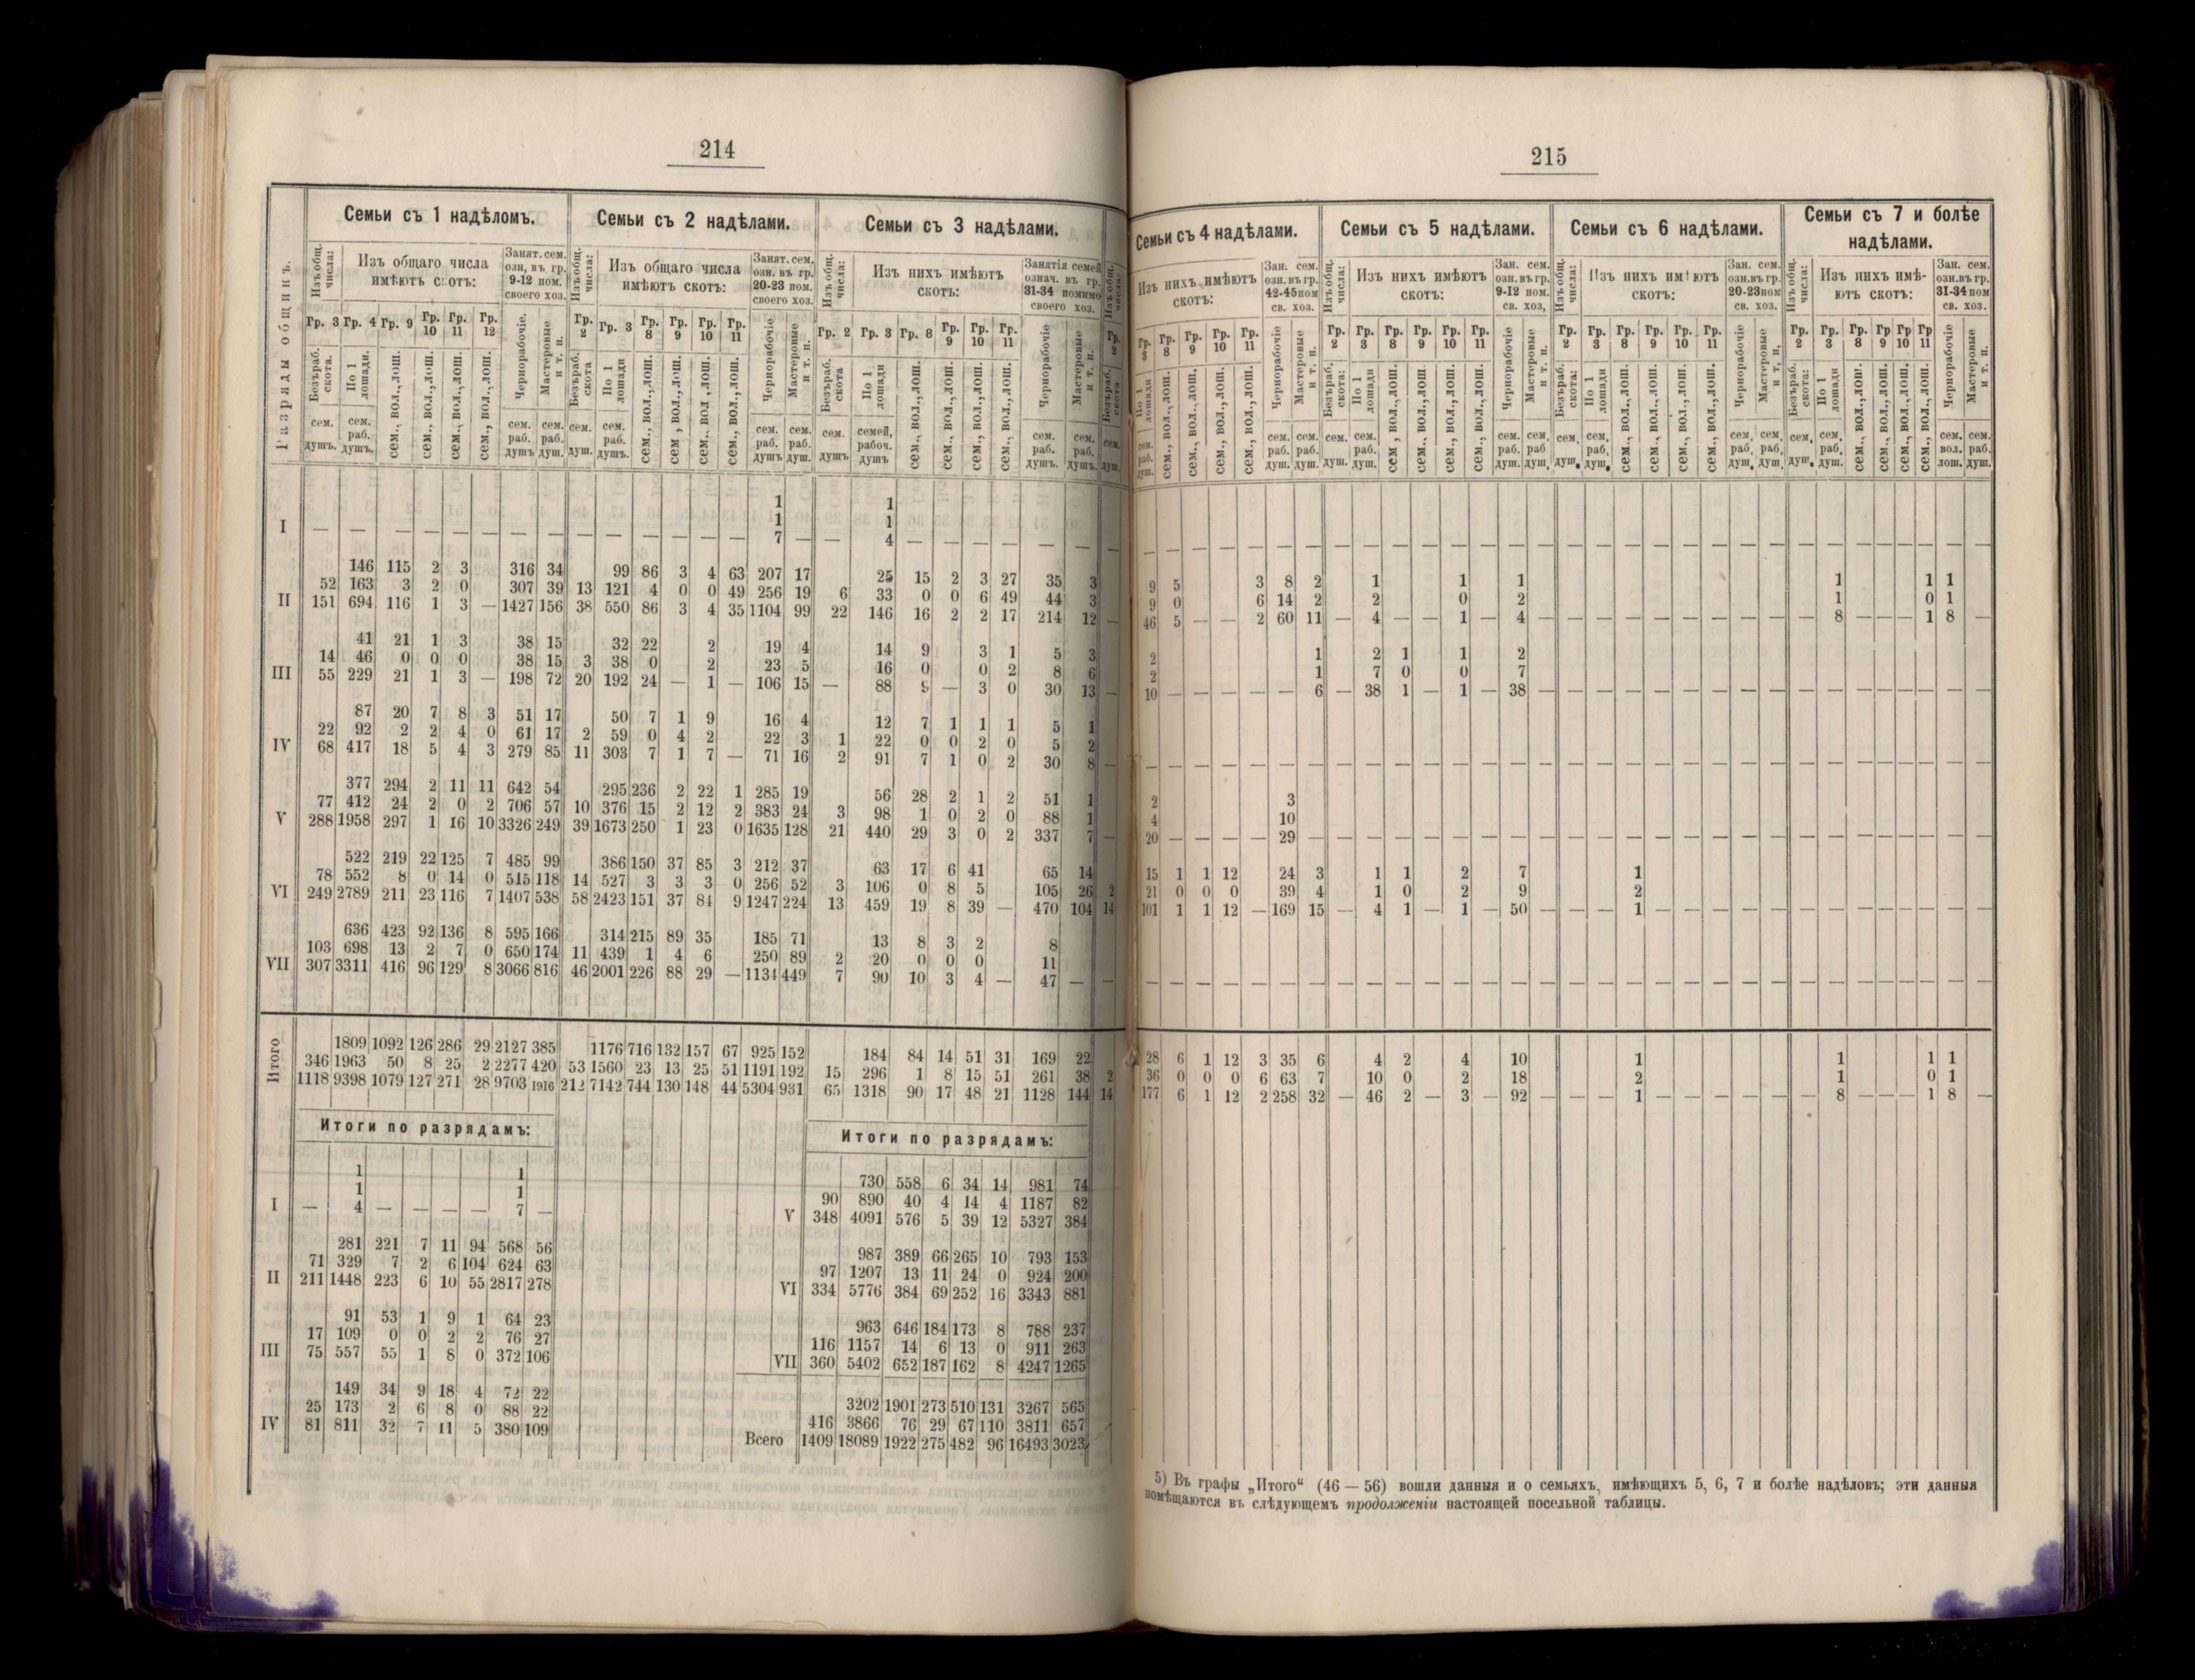 214
Семьи съ 1 надѣломъ. Семьи съ 2 надѣлами. Семьи съ 3 надѣлами.
Разряды общинъ.
Изъ общ. числа: Изъ общаго числа имѣютъ скотъ: Занят. сем. озн, въ гр. 9-12 пом. своего хоз.
Изъ общ. числа: Изъ общаго числа имѣютъ скотъ: Занят. сем. озн. въ гр. 20-23 пом. своего хоз.
Изъ общ. числа: Изъ нихъ имѣютъ скотъ: Занятія семей означ. въ гр. 31-34 помимо своего хоз.
Гр. 3 Гр. 4 Гр. 9 Гр. 10 Гр. 11 Гр. 12 Гр. 2 Гр. 3 Гр. 8 Гр. 9 Гр. 10 Гр. 11 Гр. 2 Гр. 3 Гр. 8 Гр. 9 Гр. 10 Гр. 11 Гр. 2
Безъраб. скота. По 1 лошади. сем., вол., лош. сем., вол., лош. сем., вол., лош. сем., вол., лош. Чернорабочіе. Мастеровые и т. п.
Безъраб. скота По 1 лошади сем., вол., лош. сем., вол., лош. сем., вол., лош. сем., вол., лош. Чернорабочіе Мастеровые и т. п.
Безъраб. скота По 1 лошади сем., вол., лош. сем., вол., лош. сем., вол., лош. сем., вол., лош. Чернорабочіе Мастеровые и т. п.
1 1
1 1
I — — — — — — — — — — — — — — 7 — — 4 — — — — — —
146 115 2 3 316 34 99 86 3 4 63 207 17 25 15 2 3 27 35 3
52 163 3 2 0 307 39 13 121 4 0 0 49 256 19 6 33 0 0 6 49 44 3
II 151 694 116 1 3 — 1427 156 38 550 86 3 4 35 1104 99 22 146 16 2 2 17 214 12 —
41 21 1 3 38 15 32 22 2 19 4 14 9 3 1 5 3
14 46 0 0 0 38 15 3 38 0 2 23 5 16 0 0 2 8 6
III 55 229 21 1 3 — 198 72 20 192 24 — 1 — 106 15 — 88 9 — 3 0 30 13 —
87 20 7 8 3 51 17 50 7 1 9 16 4 12 7 1 1 1 5 1
22 92 2 2 4 0 61 17 2 59 0 4 2 22 3 1 22 0 0 2 0 5 2
IV 68 417 18 5 4 3 279 85 11 303 7 1 7 — 71 16 2 91 7 1 0 2 30 8 —
377 294 2 11 11 642 54 295 236 2 22 1 285 19 56 28 2 1 2 51 1
77 412 24 2 0 2 706 57 10 376 15 2 12 2 383 24 3 98 1 0 2 0 88 1
V 288 1958 297 1 16 10 3326 249 39 1673 250 1 23 0 1635 128 21 440 29 3 0 2 337 7 —
522 219 22 125 7 485 99 386 150 37 85 3 212 37 63 17 6 41 65 14
78 552 8 0 14 0 515 118 14 527 3 3 3 0 256 52 3 106 0 8 5 105 26 2
VI 249 2789 211 23 116 7 1407 538 58 2423 151 37 84 9 1247 224 13 459 19 8 39 — 470 104 14
636 423 92 136 8 595 166 314 215 89 35 185 71 13 8 3 2 8
103 698 13 2 7 0 650 174 11 439 1 4 6 250 89 2 20 0 0 0 11
VII 307 3311 416 96 129 8 3066 816 46 2001 226 88 29 — 1134 449 7 90 10 3 4 — 47 — —
1809 1092 126 286 29 2127 385 1176 716 132 157 67 925 152 184 84 14 51 31 169 22
346 1963 50 8 25 2 2277 420 53 1560 23 13 25 51 1191 192 15 296 1 8 15 51 261 38 2
Итого 1118 9398 1079 127 271 28 9703 1916 212 7142 744 130 148 44 5304 931 65 1318 90 17 48 21 1128 144 14
Итоги по разрядамъ:
1 1
1 1
I — 4 — — — — 7 —
281 221 7 11 94 568 56
71 329 7 2 6 104 624 63
II 211 1448 223 6 10 55 2817 278
91 53 1 9 1 64 23
17 109 0 0 2 2 76 27
III 75 557 55 1 8 0 372 106
149 34 9 18 4 72 22
25 173 2 6 8 0 88 22
IV 81 811 32 7 11 5 380 109
Итоги по разрядамъ:
730 558 6 34 14 981 74
90 890 40 4 14 4 1187 82
V 348 4091 576 5 39 12 5327 384
987 389 66 265 10 793 153
97 1207 13 11 24 0 924 200
VI 334 5776 384 69 252 16 3343 881
963 646 184 173 8 788 237
116 1157 14 6 13 0 911 263
VII 360 5402 652 187 162 8 4247 1265
3202 1901 273 510 131 3267 565
416 3866 76 29 67 110 3811 657
Всего 1409 18089 1922 275 482 96 16493 3023
215
Семьи съ 4 надѣлами. Семьи съ 5 надѣлами. Семьи съ 6 надѣлами. Семьи съ 7 и болѣе надѣлами.
Изъ нихъ имѣютъ скотъ: Зан. сем. озн. въ гр. 42-45 пом св. хоз.
Изъ общ. числа: Изъ нихъ имѣютъ скотъ: Зан. сем. озн. въ гр. 9-12 пом. св. хоз,
Изъ общ. числа: Изъ нихъ имѣютъ скотъ: Зан. сем. озн. въ гр. 20-23 пом св. хоз.
Изъ общ. числа: Изъ нихъ имѣ-ютъ скотъ: Зан. сем. озн. въ гр. 31-34 пом св. хоз.
Гр. 3 Гр. 8 Гр. 9 Гр. 10 Гр. 11 Гр. 2 Гр. 3 Гр. 8 Гр. 9 Гр. 10 Гр. 11 Гр. 2 Гр. 3 Гр. 8 Гр. 9 Гр. 10 Гр. 11 Гр. 2 Гр. 3 Гр. 8 Гр 9 Гр 10 Гр 11
— — — — — — — — — — — — — — — — — — — — — — — — — — — — — —
9 5 3 8 2 1 1 1 1 1 1
9 0 6 14 2 2 0 2 1 0 1
46 5 — — 2 60 11 — 4 — — 1 — 4 — — — — — — — — — — 8 — — — 1 8 —
2 1 2 1 1 2
2 1 7 0 0 7
10 — — — — — 6 — 38 1 — 1 — 38 — — — — — — — — — — — — — — — — —
— — — — — — — — — — — — — — — — — — — — — — — — — — — — — —
2 3
4 10
20 — — — — 29 — — — — — — — — — — — — — — — — — — — — — — — —
15 1 1 12 24 3 1 1 2 7 1
21 0 0 0 39 4 1 0 2 9 2
101 1 1 12 — 169 15 — 4 1 — 1 — 50 — — — 1 — — — — — — — — — — — — —
— — — — — — — — — — — — — — — — — — — — — — — — — — — — — —
28 6 1 12 3 35 6 4 2 4 10 1 1 1 1
36 0 0 0 6 63 7 10 0 2 18 2 1 0 1
177 6 1 12 2 258 32 — 46 2 — 3 — 92 — — — 1 — — — — — — 8 — — — 1 8 —
5) Въ графы „Итого“ (46 — 56) вошли данныя и о семьяхъ, имѣющихъ 5, 6, 7 и болѣе надѣловъ; эти данныя
помѣщаются въ слѣдующемъ продолженіи настоящей посельной таблицы.